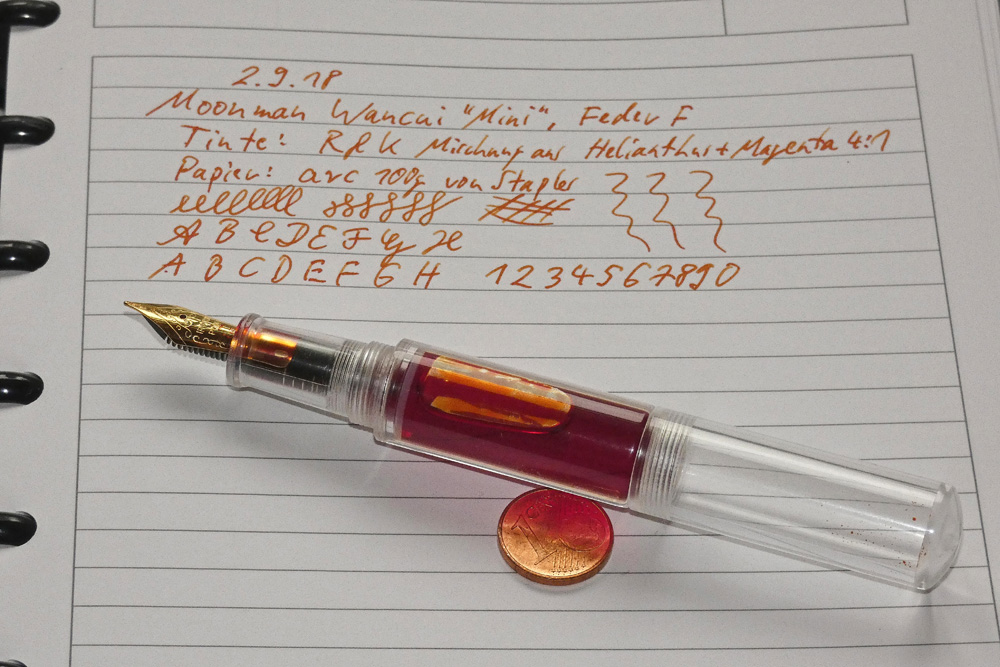 2.9.18
Moonman Wancai "Mini", Feder F
Tinte: R&K Mischung aus Helianthus + Magenta 4:1
Papier: arc 100g von Staples
A B C D E F G H
A B C D E F G H 1 2 3 4 5 6 7 8 9 0
1